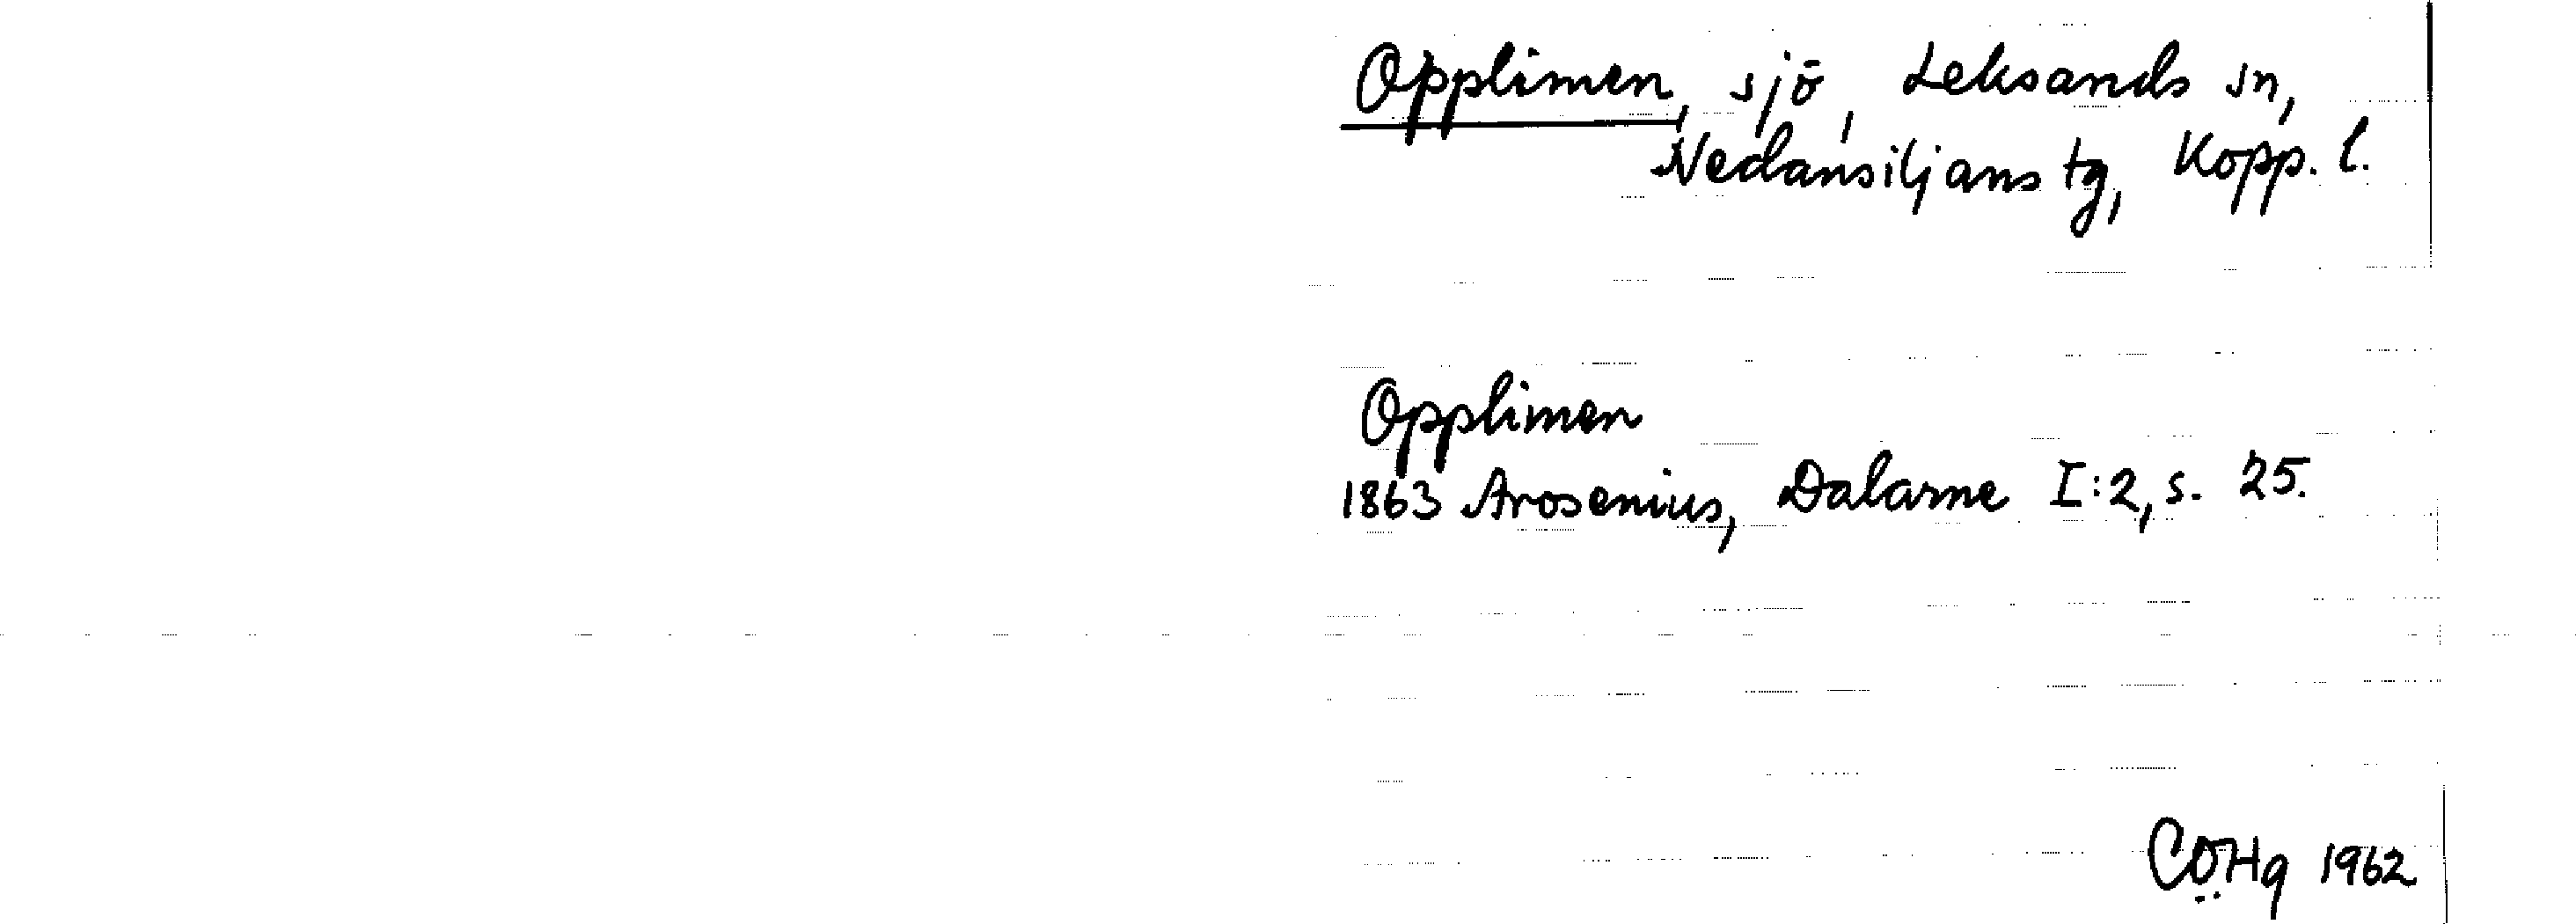 Opplimen, sjö, Leksands sn,
Nedansiljans tg, Kopp. l.
Opplimen
1863 Arosenius, Dalarne I:2, s. 25.
COHg 1962